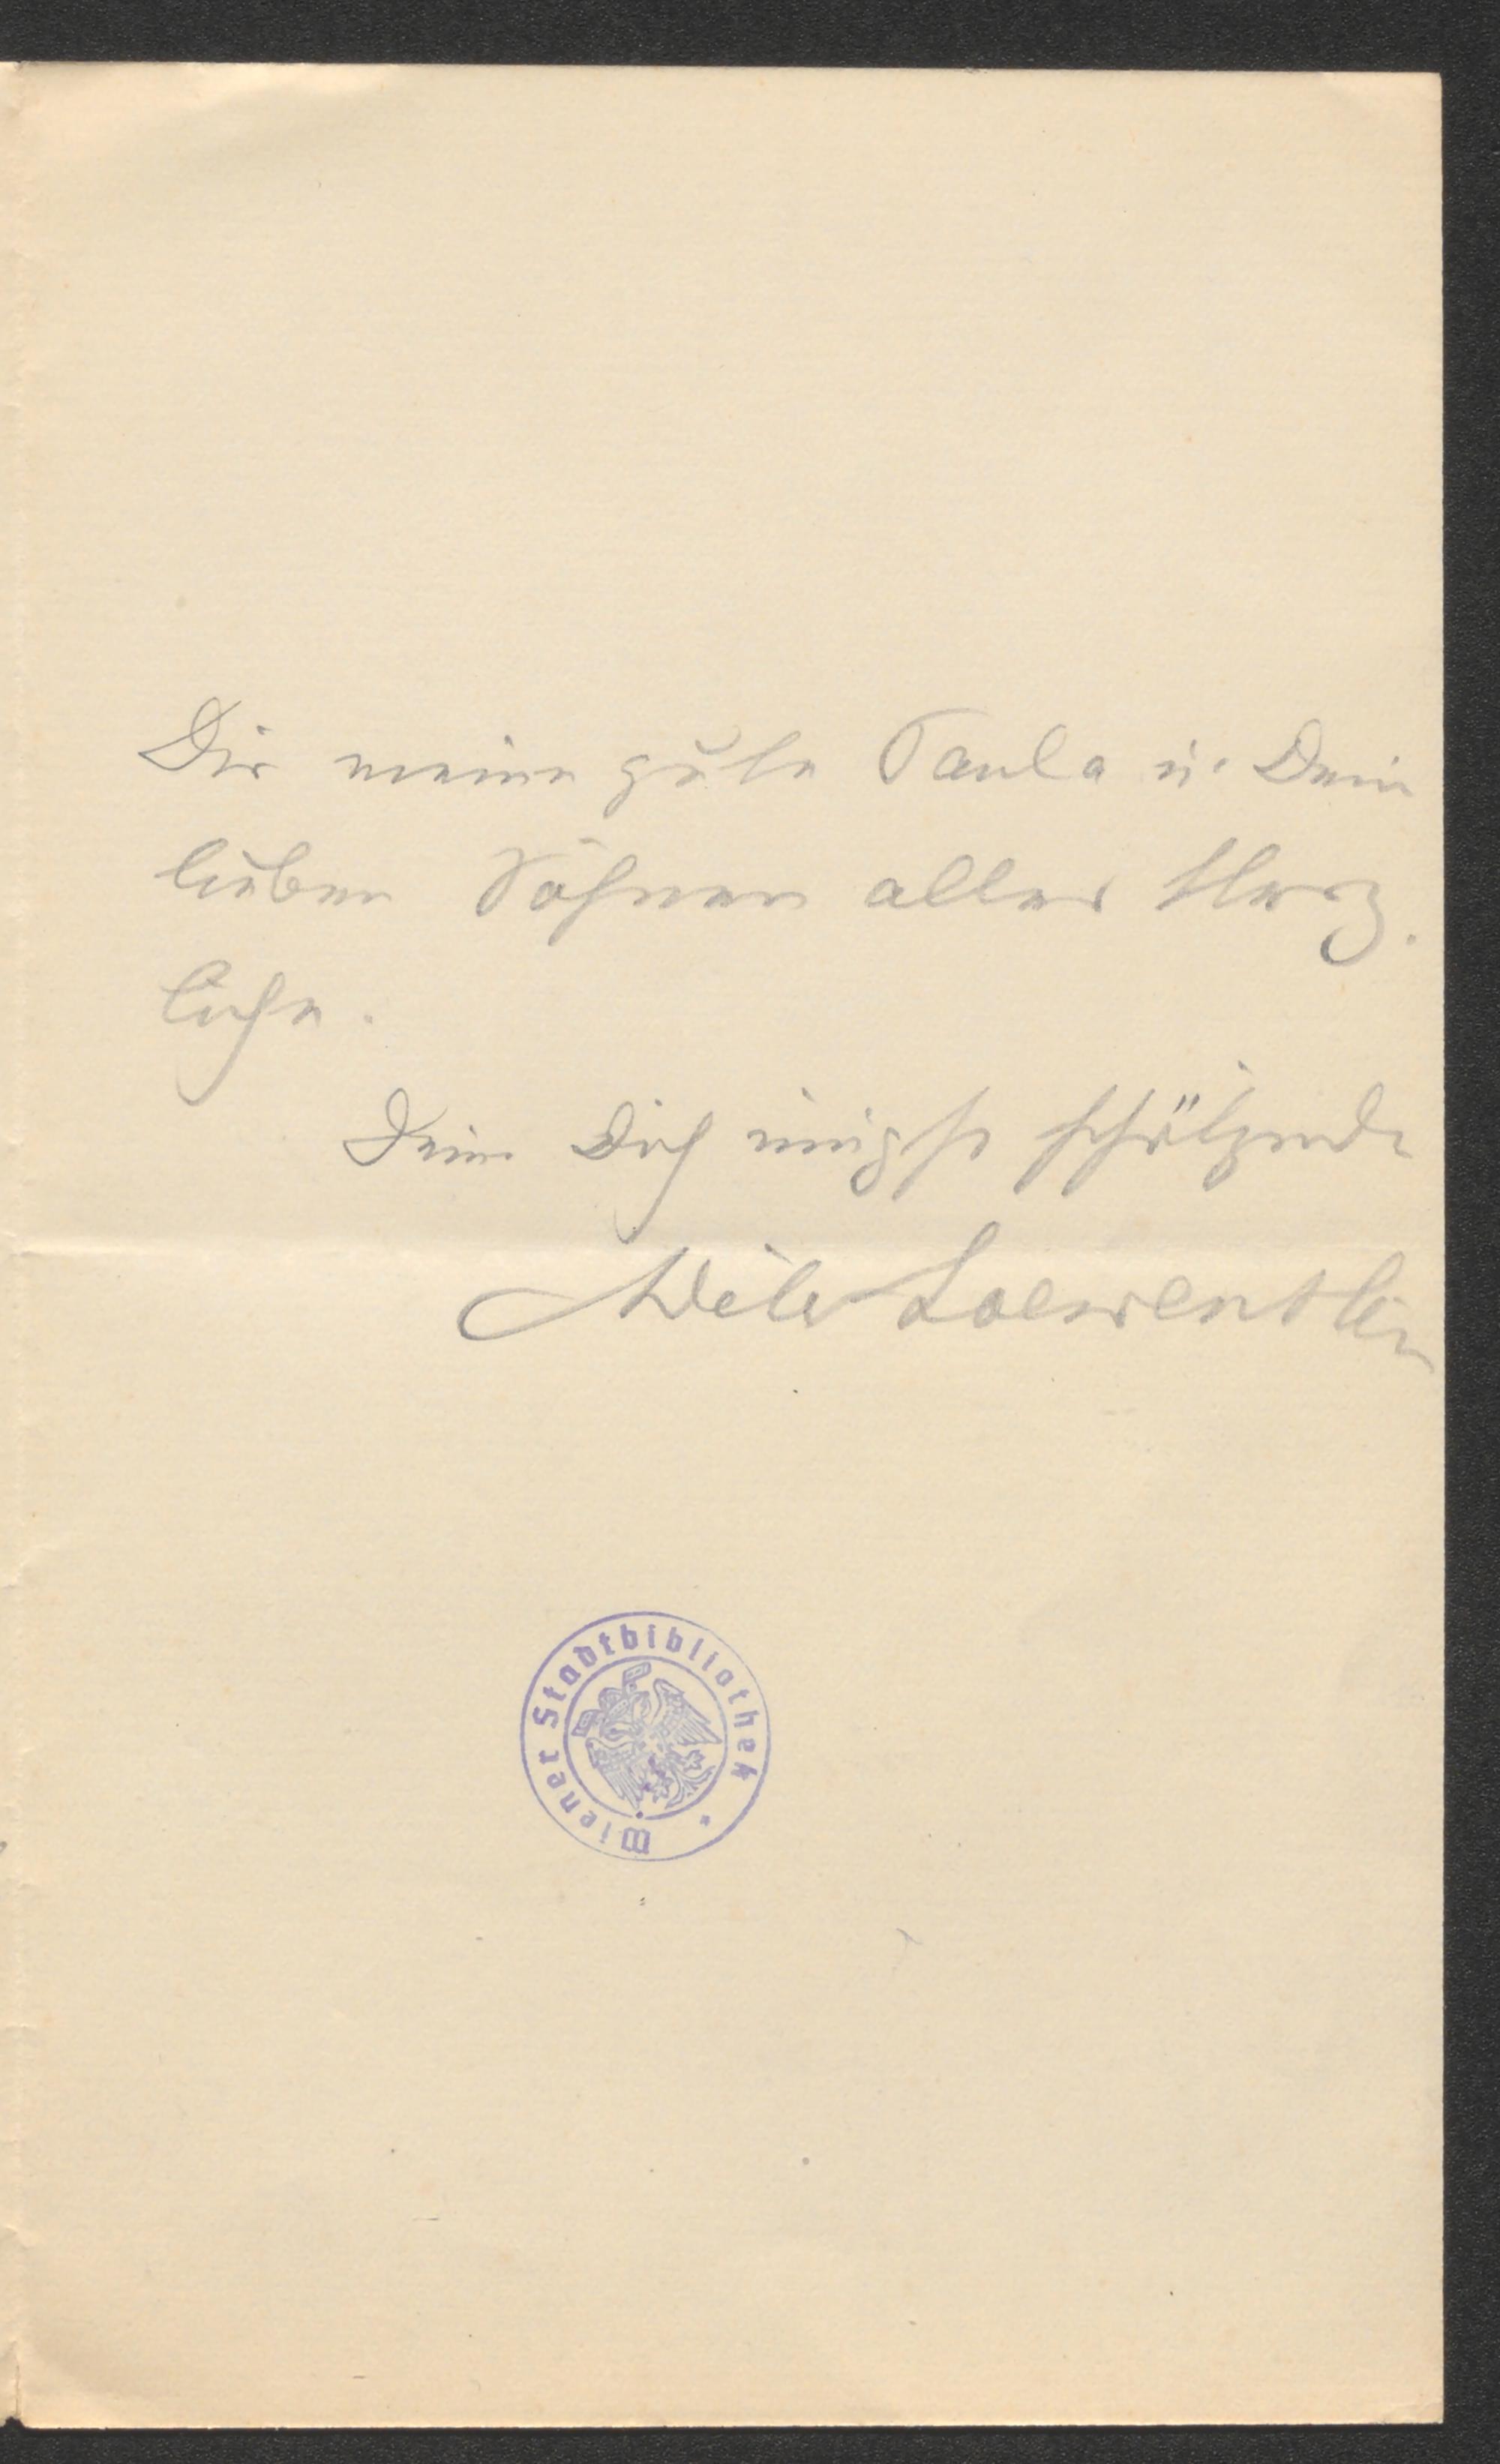 Dir meine gute Paula u. Dein
lieben Söhnen alles Herz.
liche.
Deine Dich innigst schätzende
Adele Loewenstein
Wiener Stadtbibliothek